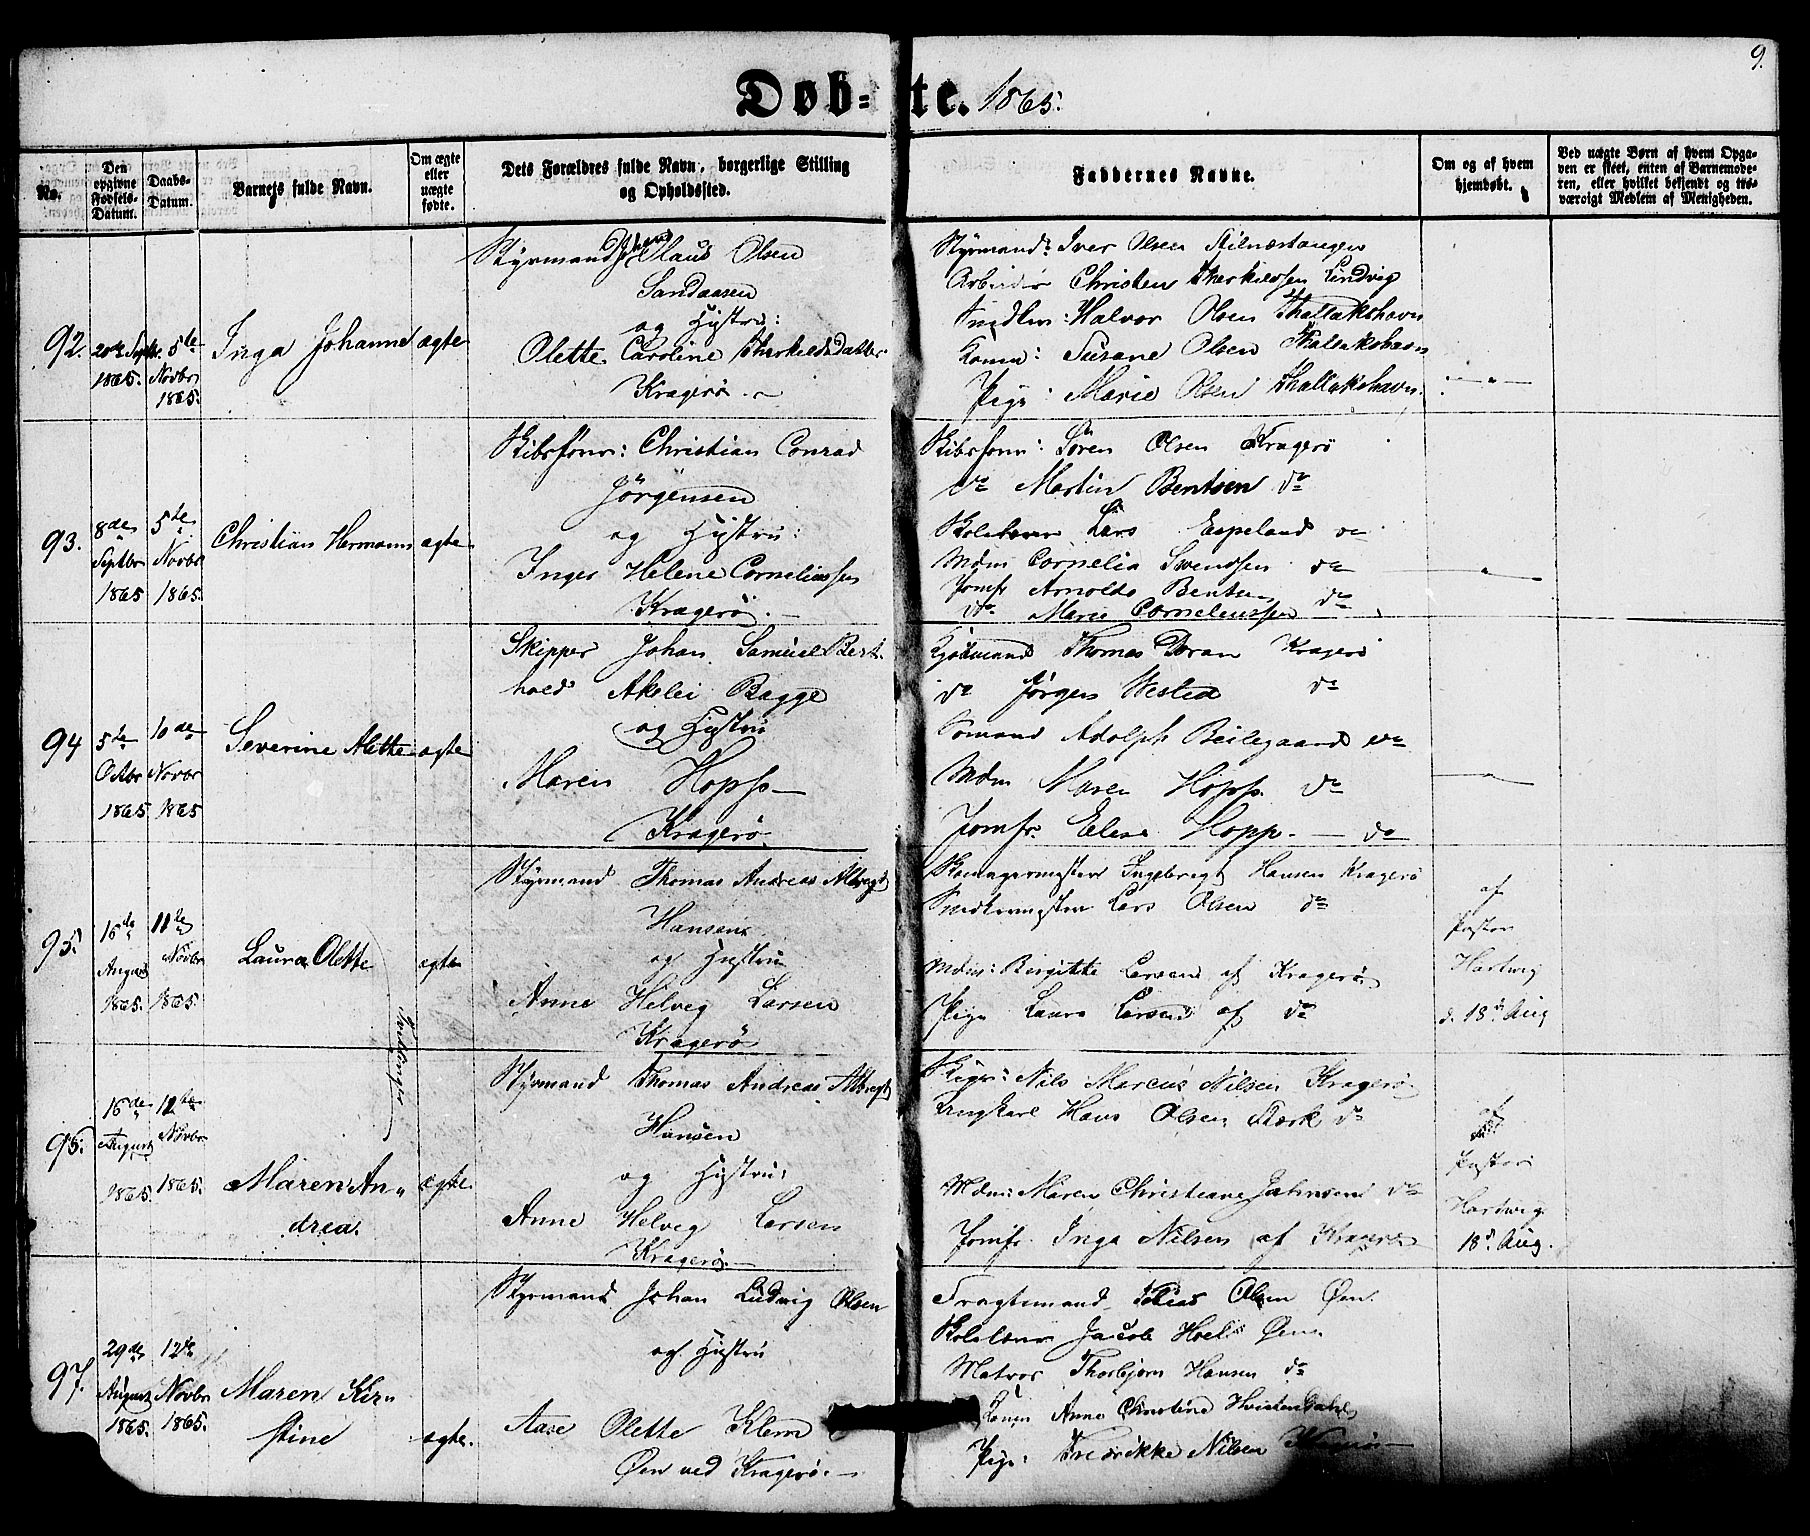 9.
Døb-te. 1865.
No.
Den opgivne Fødsels-Datum.
Daabs-Datum.
Barnets fulde Navn.
Om ægte eller uægte fødte.
Dets Forældres fulde Navn, borgerlige Stilling og Opholdssted.
Faddernes Navne.
Om og af hvem hjemdøbt.
Ved uægte Børn af hvem Opga-
ven er skeet, enten af Barnemode-
ren, eller hvilket bekjendt og tro-
værdigt Medlem af Menigheden.
92.
1865.
5te
Novbr
1865.
Inga Johanne
ægte
Styrmand Johan Olaus Olsen
Sandaasen
og Hustru:
Olette Caroline Therkildsdatter
Kragerø.
Styrmand: Iver Olsen
Christen Therkildsen Lindvig
Halvor Olsen Thallakshavn
Kone: Susane Olsen Thallakshavn
Pige: Marie Olsen Thallakshavn.
93.
8de
Septbr
1865
5te
Novbr
1865.
Christian Hermann
ægte
Skibsfører: Christian Conrad
Jörgensen
og Hustru:
Inger Helene Corneliussen
Kragerø.
Skibsfører: Sören Olsen Kragerø
do Martin Bentsen do
Skolelærer Lars Espeland do
Mdm Cornelia Svendsen do
Jomfr Arnolda Bentsen do
do Marie Corneliussen
94
5te
Octbr
1865
10de
Novbr
1865
Severine Alette
ægte
Skipper Johan Samuel Bert-
hold Akelei Bagge
og Hustru
Maren Hopp
Kragerø.
Kjøbmand Thomas Doran Kragerø
do Jørgen Wested do
Adolph Beilegaard do
Mdm Maren Hopp. do
Jomfr. Elise Hopp. do
95.
16de
August
1865.
11te
Novbr
1865.
Laura Olette
ægte
Tvillinger
Styrmand Thomas Andreas Albregt
Hansen
og Hustru
Anne Helvig Larsen
Kragerø
Ingebregt Hansen Kragerø
Lars Olsen do
Mdm: Birgitte Larsen af Kragerø
Pige Laura Larsen af do
af
Pastor
Hartwig
d. 18d Aug
95.
16de
August
1865.
12te
Novbr
1865.
Maren An-
drea.
ægte.
Styrmand Thomas Andreas Albregt
Hansen
og Hustru:
Anne Helvig Larsen
Kragerø
Nils Marcus Nilsen Kragerø
Ungkarl Hans Olsen Stærk do
Mdm: Maren Christiane Jahnsen do
Jomfr. Inga Nilsen af Kragerø
af
Pastor
Hartwig
18d Aug.
97.
29de
August
1865.
12te
Novbr
1865.
Maren Kirs
stine
ægte.
Styrmand Johan Ludvig Olsen
og Hustru
Aase Olette Klem
Øen ved Kragerø.
Fragtemand Tobias Olsen Øen.
Skolelærer Jacob Øen
Matros Thorbjørn Hansen do
Konen Anne Christine Hvistendahl
Pige: Fredrikke Nilsen Kragerø